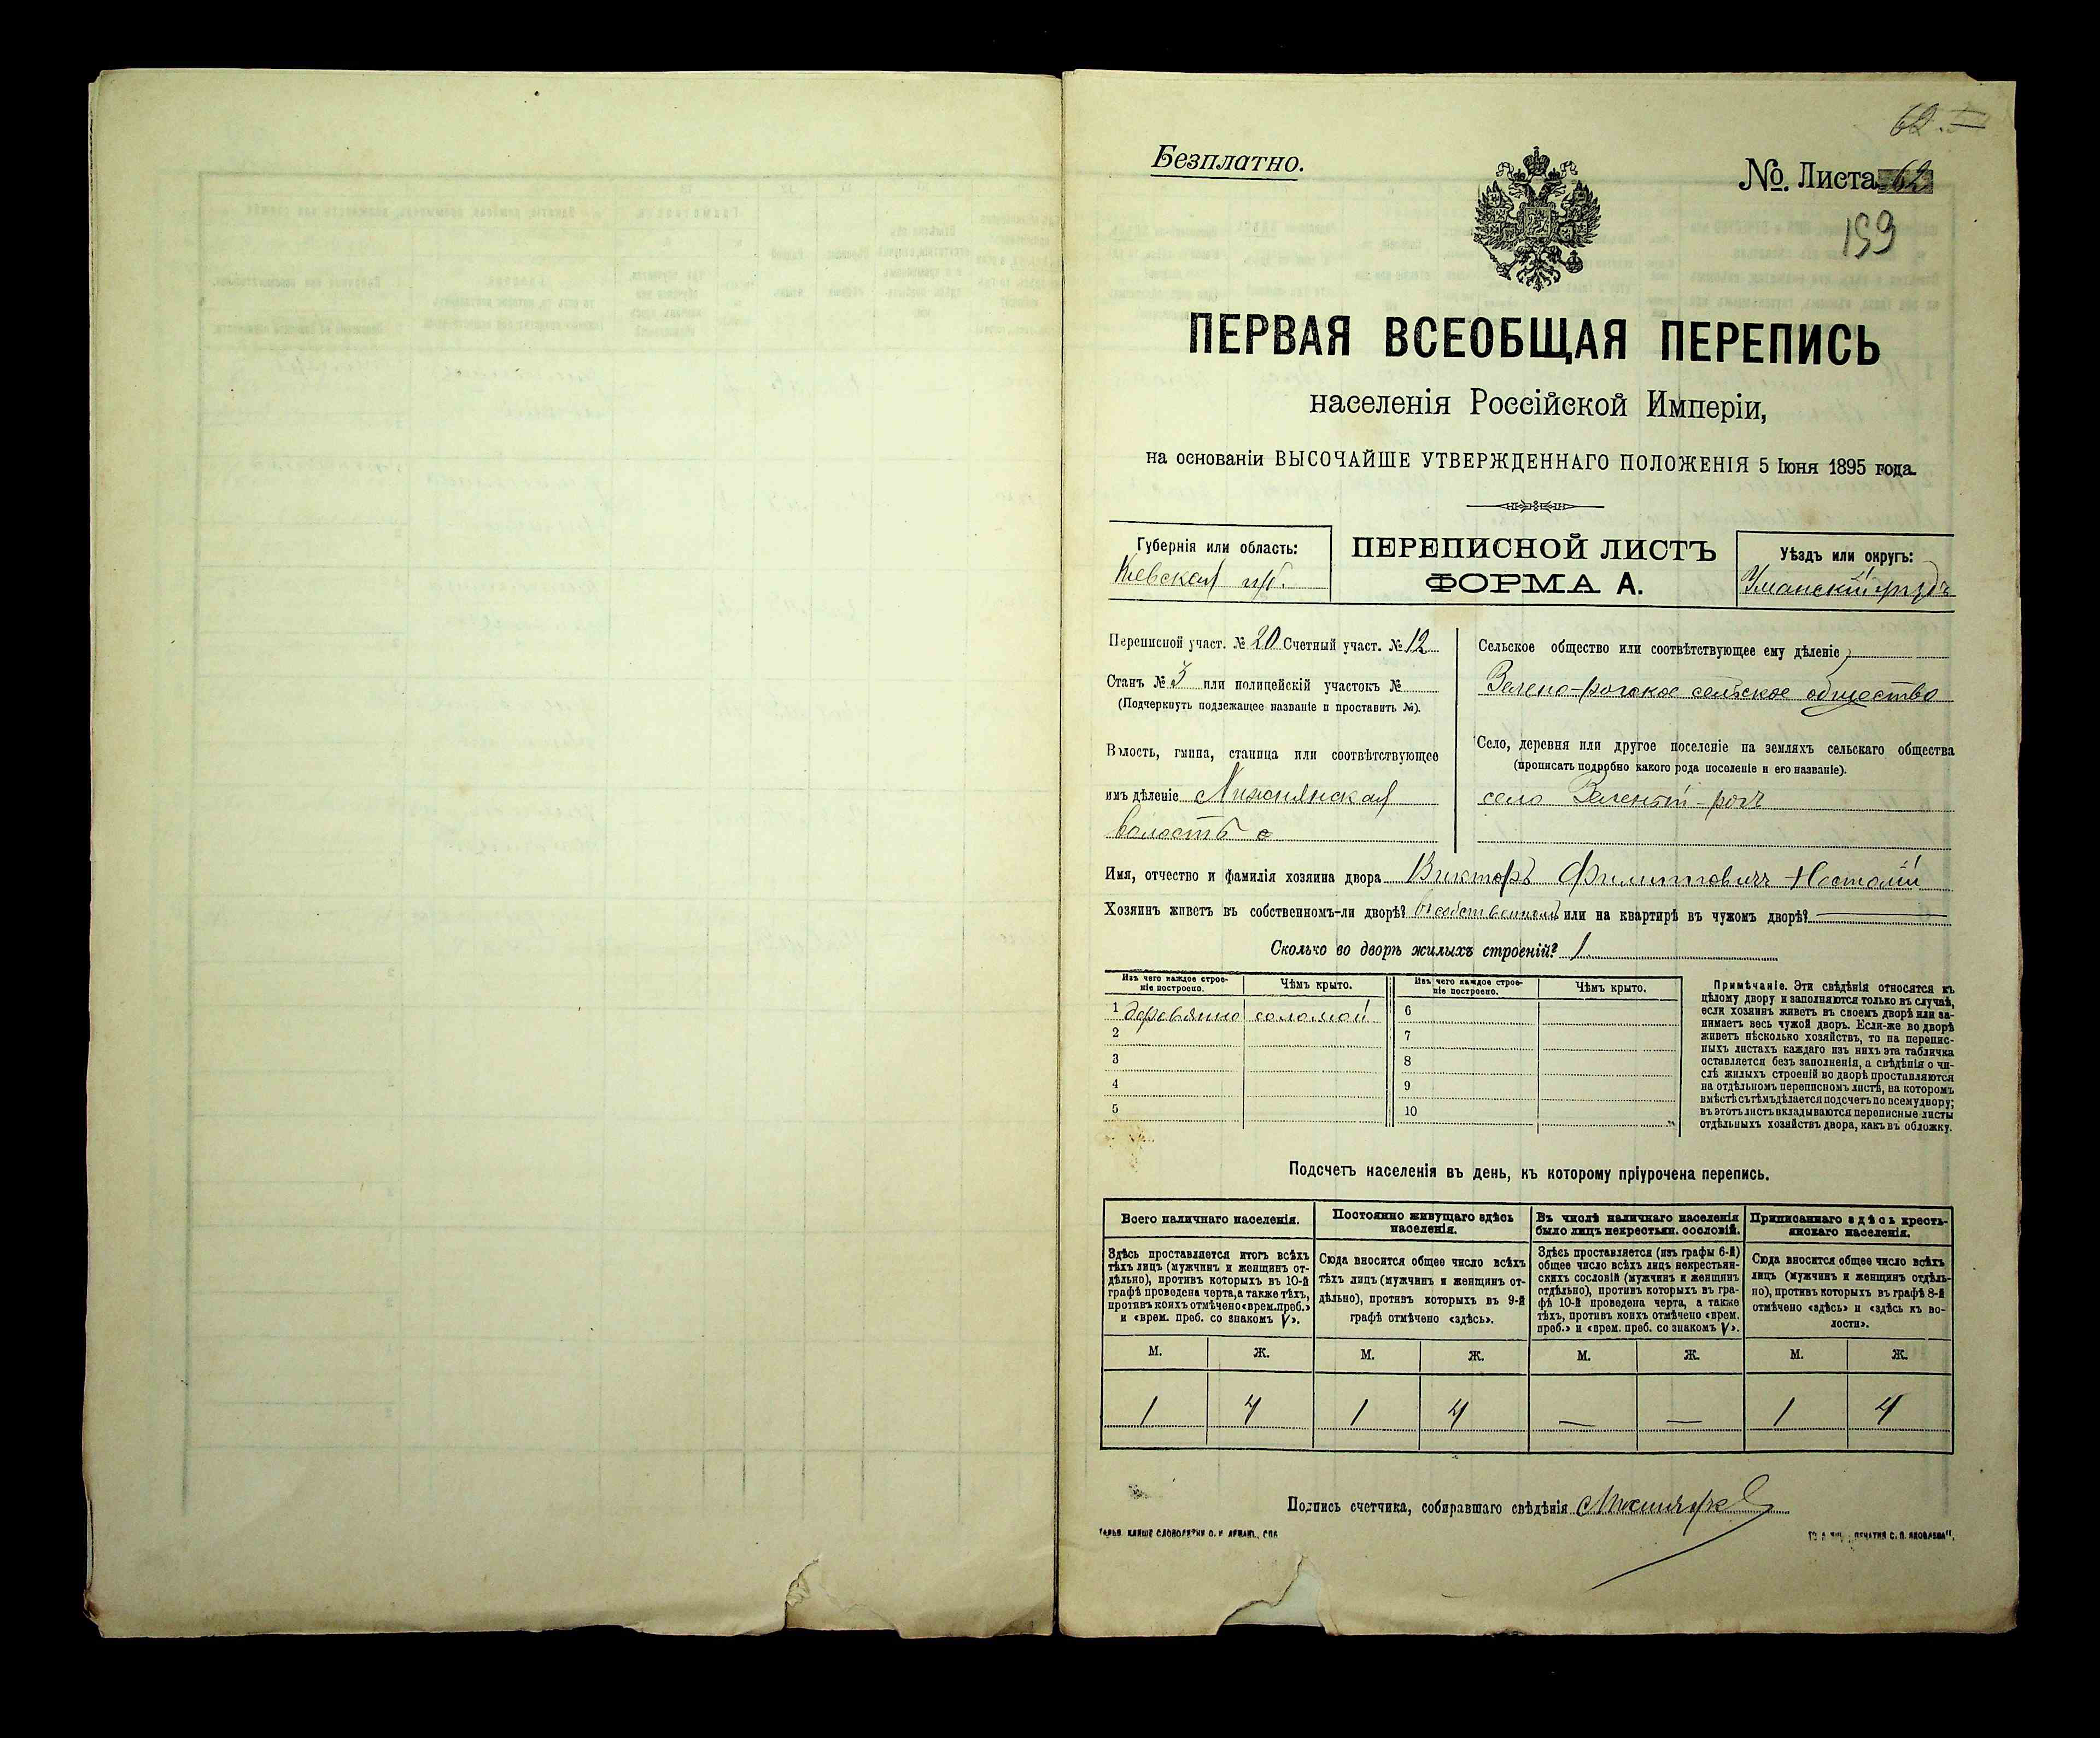 62.
Безплатно.
№. Листа 62
159
ПЕРВАЯ ВСЕОБЩАЯ ПЕРЕПИСЬ
населенія Россійской Имперіи,
на основаніи ВЫСОЧАЙШЕ УТВЕРЖДЕННАГО ПОЛОЖЕНІЯ 5 Іюня 1895 года.
Губернія или область:
Кіевская губ.
ПЕРЕПИСНОЙ ЛИСТЪ
ФОРМА А.
Уѣздъ или округъ:
Уманскій уѣздъ
Переписной участ. № 20 Счетный участ. № 12
Станъ № 3 или полицейскій участокъ №
(Подчеркнуть подлежащее названіе и проставить №).
Волость, гмина, станица или соотвѣтствующее
имъ дѣленіе
волость
Сельское общество или соотвѣтствующее ему дѣленіе
Зелено-рогское сельское общество
Село, деревня или другое поселеніе на земляхъ сельскаго общества
(прописать подробно какого рода поселеніе и его названіе).
село Зеленый-рогъ
Имя, отчество и фамилія хозяина двора Викторъ Филипповичъ
Хозяинъ живетъ въ собственномъ-ли дворѣ? въ собственномъ или на квартирѣ въ чужомъ дворѣ? —
Сколько во дворѣ жилыхъ строеній? 1.
Изъ чего каждое строе-
ніе построено.
Чѣмъ крыто.
Изъ чего каждое строе-
ніе построено.
Чѣмъ крыто.
1 деревянно соломой
6
2
7
3
8
4
9
5
10
Примѣчаніе. Эти свѣдѣнія относятся къ
цѣлому двору и заполняются только въ случаѣ,
если хозяинъ живетъ въ своемъ дворѣ или за-
нимаетъ весь чужой дворъ. Если-же во дворѣ
живетъ нѣсколько хозяйствъ, то на перепис-
ныхъ листахъ каждаго изъ нихъ эта табличка
оставляется безъ заполненія, а свѣдѣнія о чи-
слѣ жилыхъ строеній во дворѣ проставляются
на отдѣльномъ переписномъ листѣ, на которомъ
вмѣстѣ съ тѣмъ дѣлается подсчетъ по всему двору;
въ этотъ листъ вкладываются переписные листы
отдѣльныхъ хозяйствъ двора, какъ въ обложку.
Подсчетъ населенія въ день, къ которому пріурочена перепись.
Всего наличнаго населенія.
Постоянно живущаго здѣсь
населенія.
Въ числѣ наличнаго населенія
было лицъ некрестьян. сословій.
Приписаннаго здѣсь кресть-
янскаго населенія.
Здѣсь проставляется итогъ всѣхъ
тѣхъ лицъ (мужчинъ и женщинъ от-
дѣльно), противъ которыхъ въ 10-й
графѣ проведена черта, а также тѣхъ,
противъ коихъ отмѣчено «врем. преб.»
и «врем. преб. со знакомъ V».
Сюда вносится общее число всѣхъ
тѣхъ лицъ (мужчинъ и женщинъ от-
дѣльно), противъ которыхъ въ 9-й
графѣ отмѣчено «здѣсь».
Здѣсь проставляется (изъ графы 6-й)
общее число всѣхъ лицъ некрестьян-
скихъ сословій (мужчинъ и женщинъ
отдѣльно), противъ которыхъ въ гра-
фѣ 10-й проведена черта, а также
тѣхъ, противъ коихъ отмѣчено «врем.
преб.» и «врем. преб. со знакомъ V».
Сюда вносится общее число всѣхъ
лицъ (мужчинъ и женщинъ отдѣль-
но), противъ которыхъ въ графѣ 8-й
отмѣчено «здѣсь» и «здѣсь къ во-
лости».
М. Ж. М. Ж. М. Ж. М. Ж.
1 4 1 4 — — 1 4
Подпись счетчика, собиравшаго свѣдѣнія